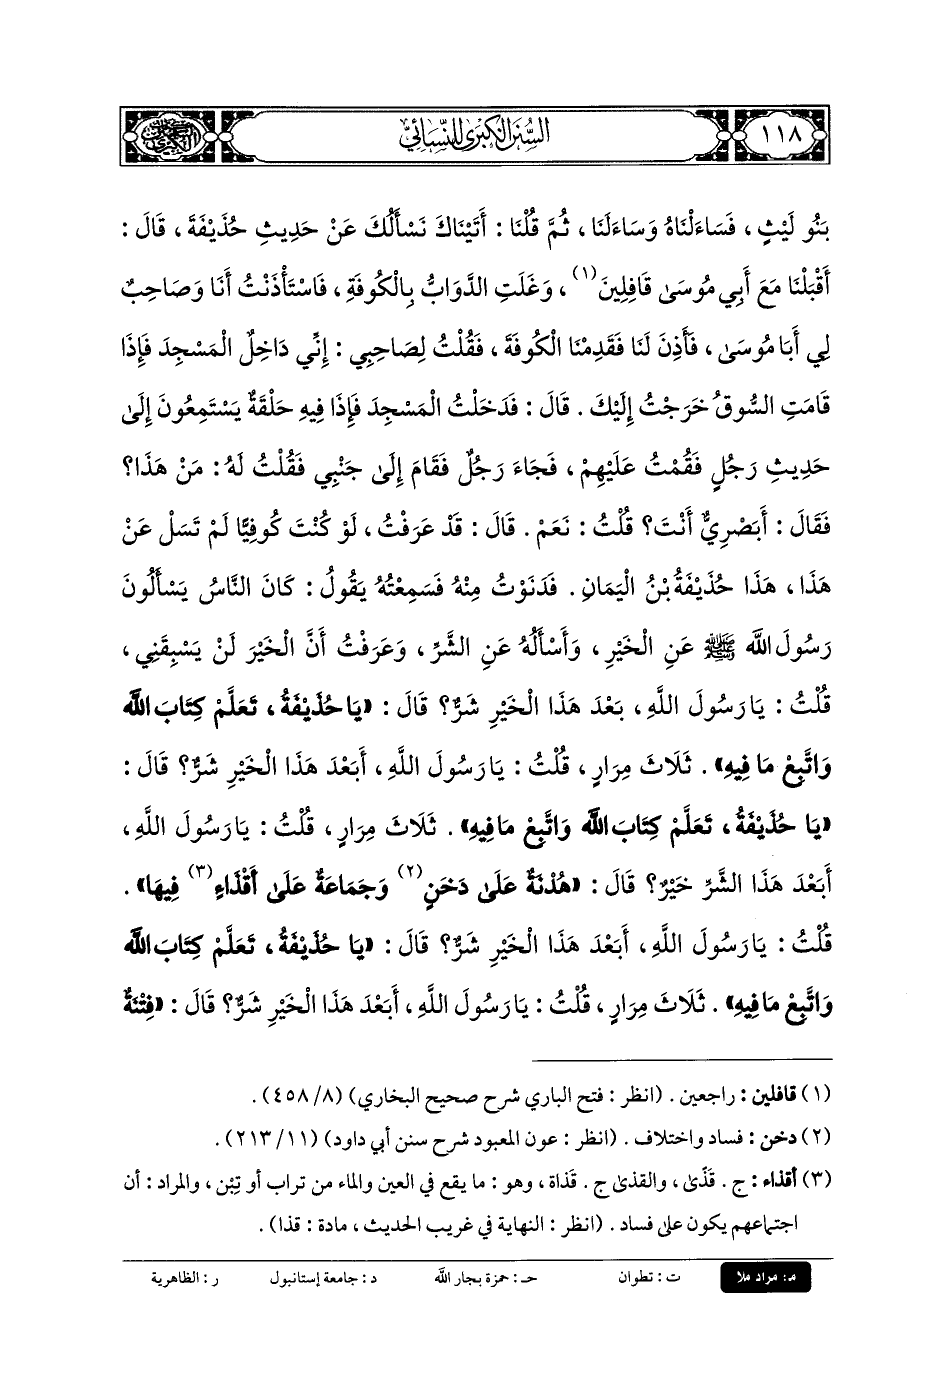 ١١٨
السنن الكبرى للنسائي
بَنُو لَيْثٍ ، فَسَاءَلْنَاهُ وَسَاءَلَنَا ، ثُمَّ قُلْنَا : أَتَيْنَاكَ نَسْأَلُكَ عَنْ حَدِيثِ حُذَيْفَةَ ، قَالَ :
أَقْبَلْنَا مَعَ أَبِي مُوسَىٰ قَافِلِينَ(١) ، وَغَلَتِ الدَّوَابُّ بِالْكُوفَةِ ، فَاسْتَأْذَنْتُ أَنَا وَصَاحِبٌ
لِي أَبَا مُوسَىٰ ، فَأَذِنَ لَنَا فَقَدِمْنَا الْكُوفَةَ ، فَقُلْتُ لِصَاحِبِي : إِنِّي دَاخِلٌ الْمَسْجِدَ فَإِذَا
قَامَتِ السُّوقُ خَرَجْتُ إِلَيْكَ . قَالَ : فَدَخَلْتُ الْمَسْجِدَ فَإِذَا فِيهِ حَلْقَةٌ يَسْتَمِعُونَ إِلَىٰ
حَدِيثِ رَجُلٍ فَقُمْتُ عَلَيْهِمْ ، فَجَاءَ رَجُلٌ فَقَامَ إِلَىٰ جَنْبِي فَقُلْتُ لَهُ : مَنْ هَذَا؟
فَقَالَ : أَبَصْرِيٌّ أَنْتَ؟ قُلْتُ : نَعَمْ . قَالَ : قَدْ عَرَفْتُ ، لَوْ كُنْتَ كُوفِيًّا لَمْ تَسَلْ عَنْ
هَذَا ، هَذَا حُذَيْفَةُ بْنُ الْيَمَانِ . فَدَنَوْتُ مِنْهُ فَسَمِعْتُهُ يَقُولُ : كَانَ النَّاسُ يَسْأَلُونَ
رَسُولَ اللَّهِ ﷺ عَنِ الْخَيْرِ ، وَأَسْأَلُهُ عَنِ الشَّرِّ ، وَعَرَفْتُ أَنَّ الْخَيْرَ لَنْ يَسْبِقَنِي ،
قُلْتُ : يَا رَسُولَ اللَّهِ ، بَعْدَ هَذَا الْخَيْرِ شَرٌّ؟ قَالَ : «يَا حُذَيْفَةُ ، تَعَلَّمْ كِتَابَ اللَّهِ
وَاتَّبِعْ مَا فِيهِ» . ثَلَاثَ مِرَارٍ ، قُلْتُ : يَا رَسُولَ اللَّهِ ، أَبَعْدَ هَذَا الْخَيْرِ شَرٌّ؟ قَالَ :
«يَا حُذَيْفَةُ ، تَعَلَّمْ كِتَابَ اللَّهِ وَاتَّبِعْ مَا فِيهِ» . ثَلَاثَ مِرَارٍ ، قُلْتُ : يَا رَسُولَ اللَّهِ ،
أَبَعْدَ هَذَا الشَّرِّ خَيْرٌ؟ قَالَ : «هُدْنَةٌ عَلَىٰ دَخَنٍ(٢) وَجَمَاعَةٌ عَلَىٰ أَقْذَاءٍ(٣) فِيهَا» .
قُلْتُ : يَا رَسُولَ اللَّهِ ، أَبَعْدَ هَذَا الْخَيْرِ شَرٌّ؟ قَالَ : «يَا حُذَيْفَةُ ، تَعَلَّمْ كِتَابَ اللَّهِ
وَاتَّبِعْ مَا فِيهِ» . ثَلَاثَ مِرَارٍ ، قُلْتُ : يَا رَسُولَ اللَّهِ ، أَبَعْدَ هَذَا الْخَيْرِ شَرٌّ؟ قَالَ : «فِتْنَةٌ
(١) قافلين : راجعين . (انظر : فتح الباري شرح صحيح البخاري) (٨/ ٤٥٨) .
(٢) دخن : فساد واختلاف . (انظر : عون المعبود شرح سنن أبي داود) (١١/ ٢١٣) .
(٣) أقذاء : ج . قَذًى ، والقذىٰ ج . قذاة ، وهو : ما يقع في العين والماء من تراب أو تِبْن ، والمراد : أن
اجتماعهم يكون على فساد . (انظر : النهاية في غريب الحديث ، مادة : قذا) .
م: مراد ملا ت : تطوان حـ : حمزة بجار الله د : جامعة إستانبول ر : الظاهرية